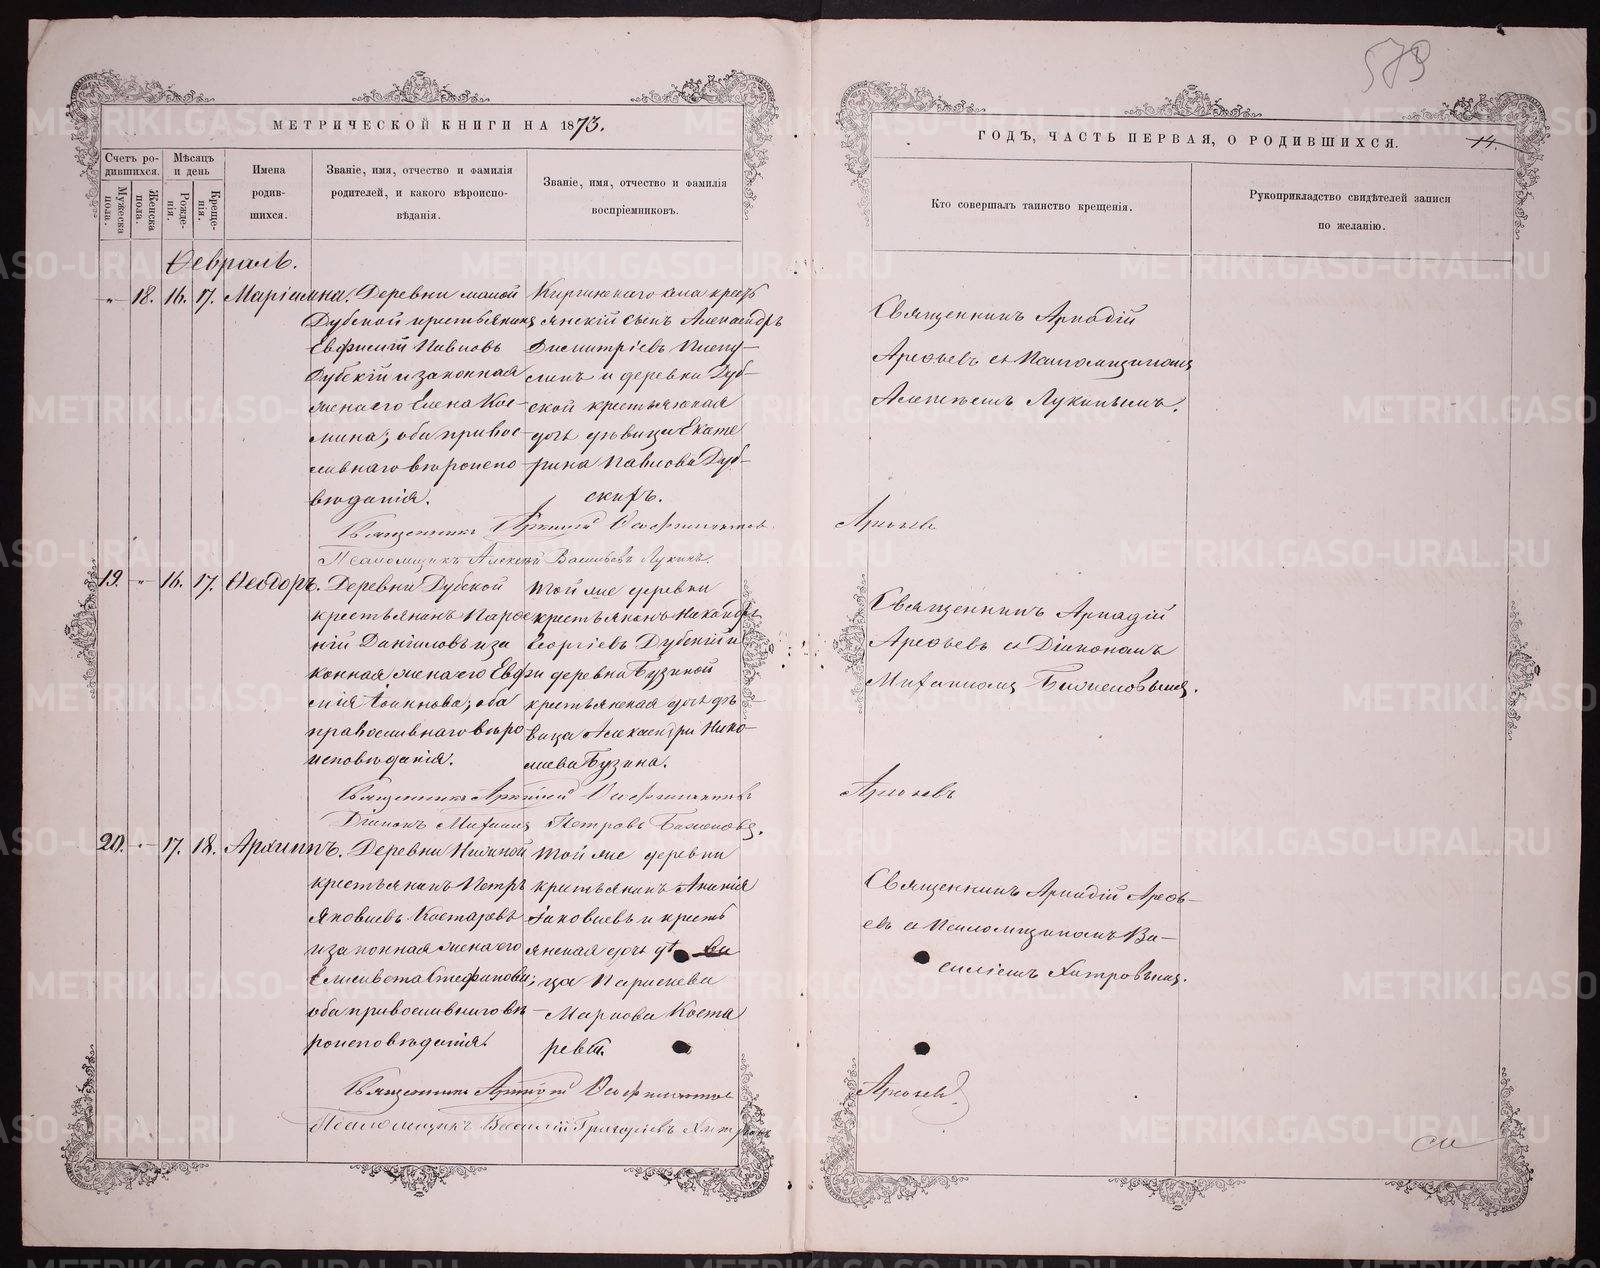 573
МЕТРИЧЕСКОЙ КНИГИ НА 1873.
Счетъ ро-
дившихся.
Мужеска
пола.
Женска
пола.
Мѣсяцъ
и день
Рожде-
нія.
Креще-
нія.
Имена
родив-
шихся.
Званіе, имя, отчество и фамилія
родителей, и какого вѣроиспо-
вѣданія.
Званіе, имя, отчество и фамилія
воспріемниковъ.
Ѳевраль.
" 18. 16. 17. Маріамна.
Деревни малой
Дубской крестьянинъ
Евфимій Павловъ
Дубскій и законная
жена его Елена Кос-
мина; оба правос-
лавнаго вѣроиспо
вѣданія.
Киргинскаго села кресть
янскій сынъ Александръ
Димитріевъ
и деревни Дуб-
ской крестьянская
дочь дѣвица Екате
рина Павлова Дуб-
скихъ.
Священникъ Аркадій
Псаломщикъ Алексѣй Васильевъ Лукинъ.
19. " 16. 17. Ѳеодоръ.
Деревни Дубской
крестьянинъ Парѳе
ній Даніиловъ и за
конная жена его Евфи
мія Іоаннова; оба
православнаго вѣро
исповѣданія.
Той же деревни
крестьянинъ Никаноръ
Георгіевъ Дубскій и
деревни Бузиной
крестьянская дочь дѣ
вица Александра Нико-
лаева Бузина.
Священникъ Аркадій
Діаконъ Михаилъ Петровъ Баженовъ.
20. " 17. 18. Архиппъ.
Деревни Ницыной
крестьянинъ Петръ
Яковлевъ Костаревъ
и законная жена его
Елисавета Стефанова;
оба православнаго вѣ
роисповѣданія.
Той же деревни
крестьянинъ Ананія
Іаковлевъ и кресть
янская дочь дѣ ви
ца Параскева
Маркова Коста
рева.
Священникъ Аркадій
Псаломщикъ Василій Григорьевъ Хитровъ
ГОДЪ, ЧАСТЬ ПЕРВАЯ, О РОДИВШИХСЯ.
14.
Кто совершалъ таинство крещенія.
Рукоприкладство свидѣтелей записи
по желанію.
Священникъ Аркадій
Арефьевъ съ Псаломщикомъ
Алексѣемъ Лукинымъ.
Арефьевъ
Священникъ Аркадій
Арефьевъ съ Діакономъ
Михаиломъ Баженовымъ.
Арефьевъ
Священникъ Аркадій Арефь-
евъ съ Псаломщикомъ Ва-
силіемъ Хитровымъ.
Арефьевъ
METRIKI.GASO-URAL.RU